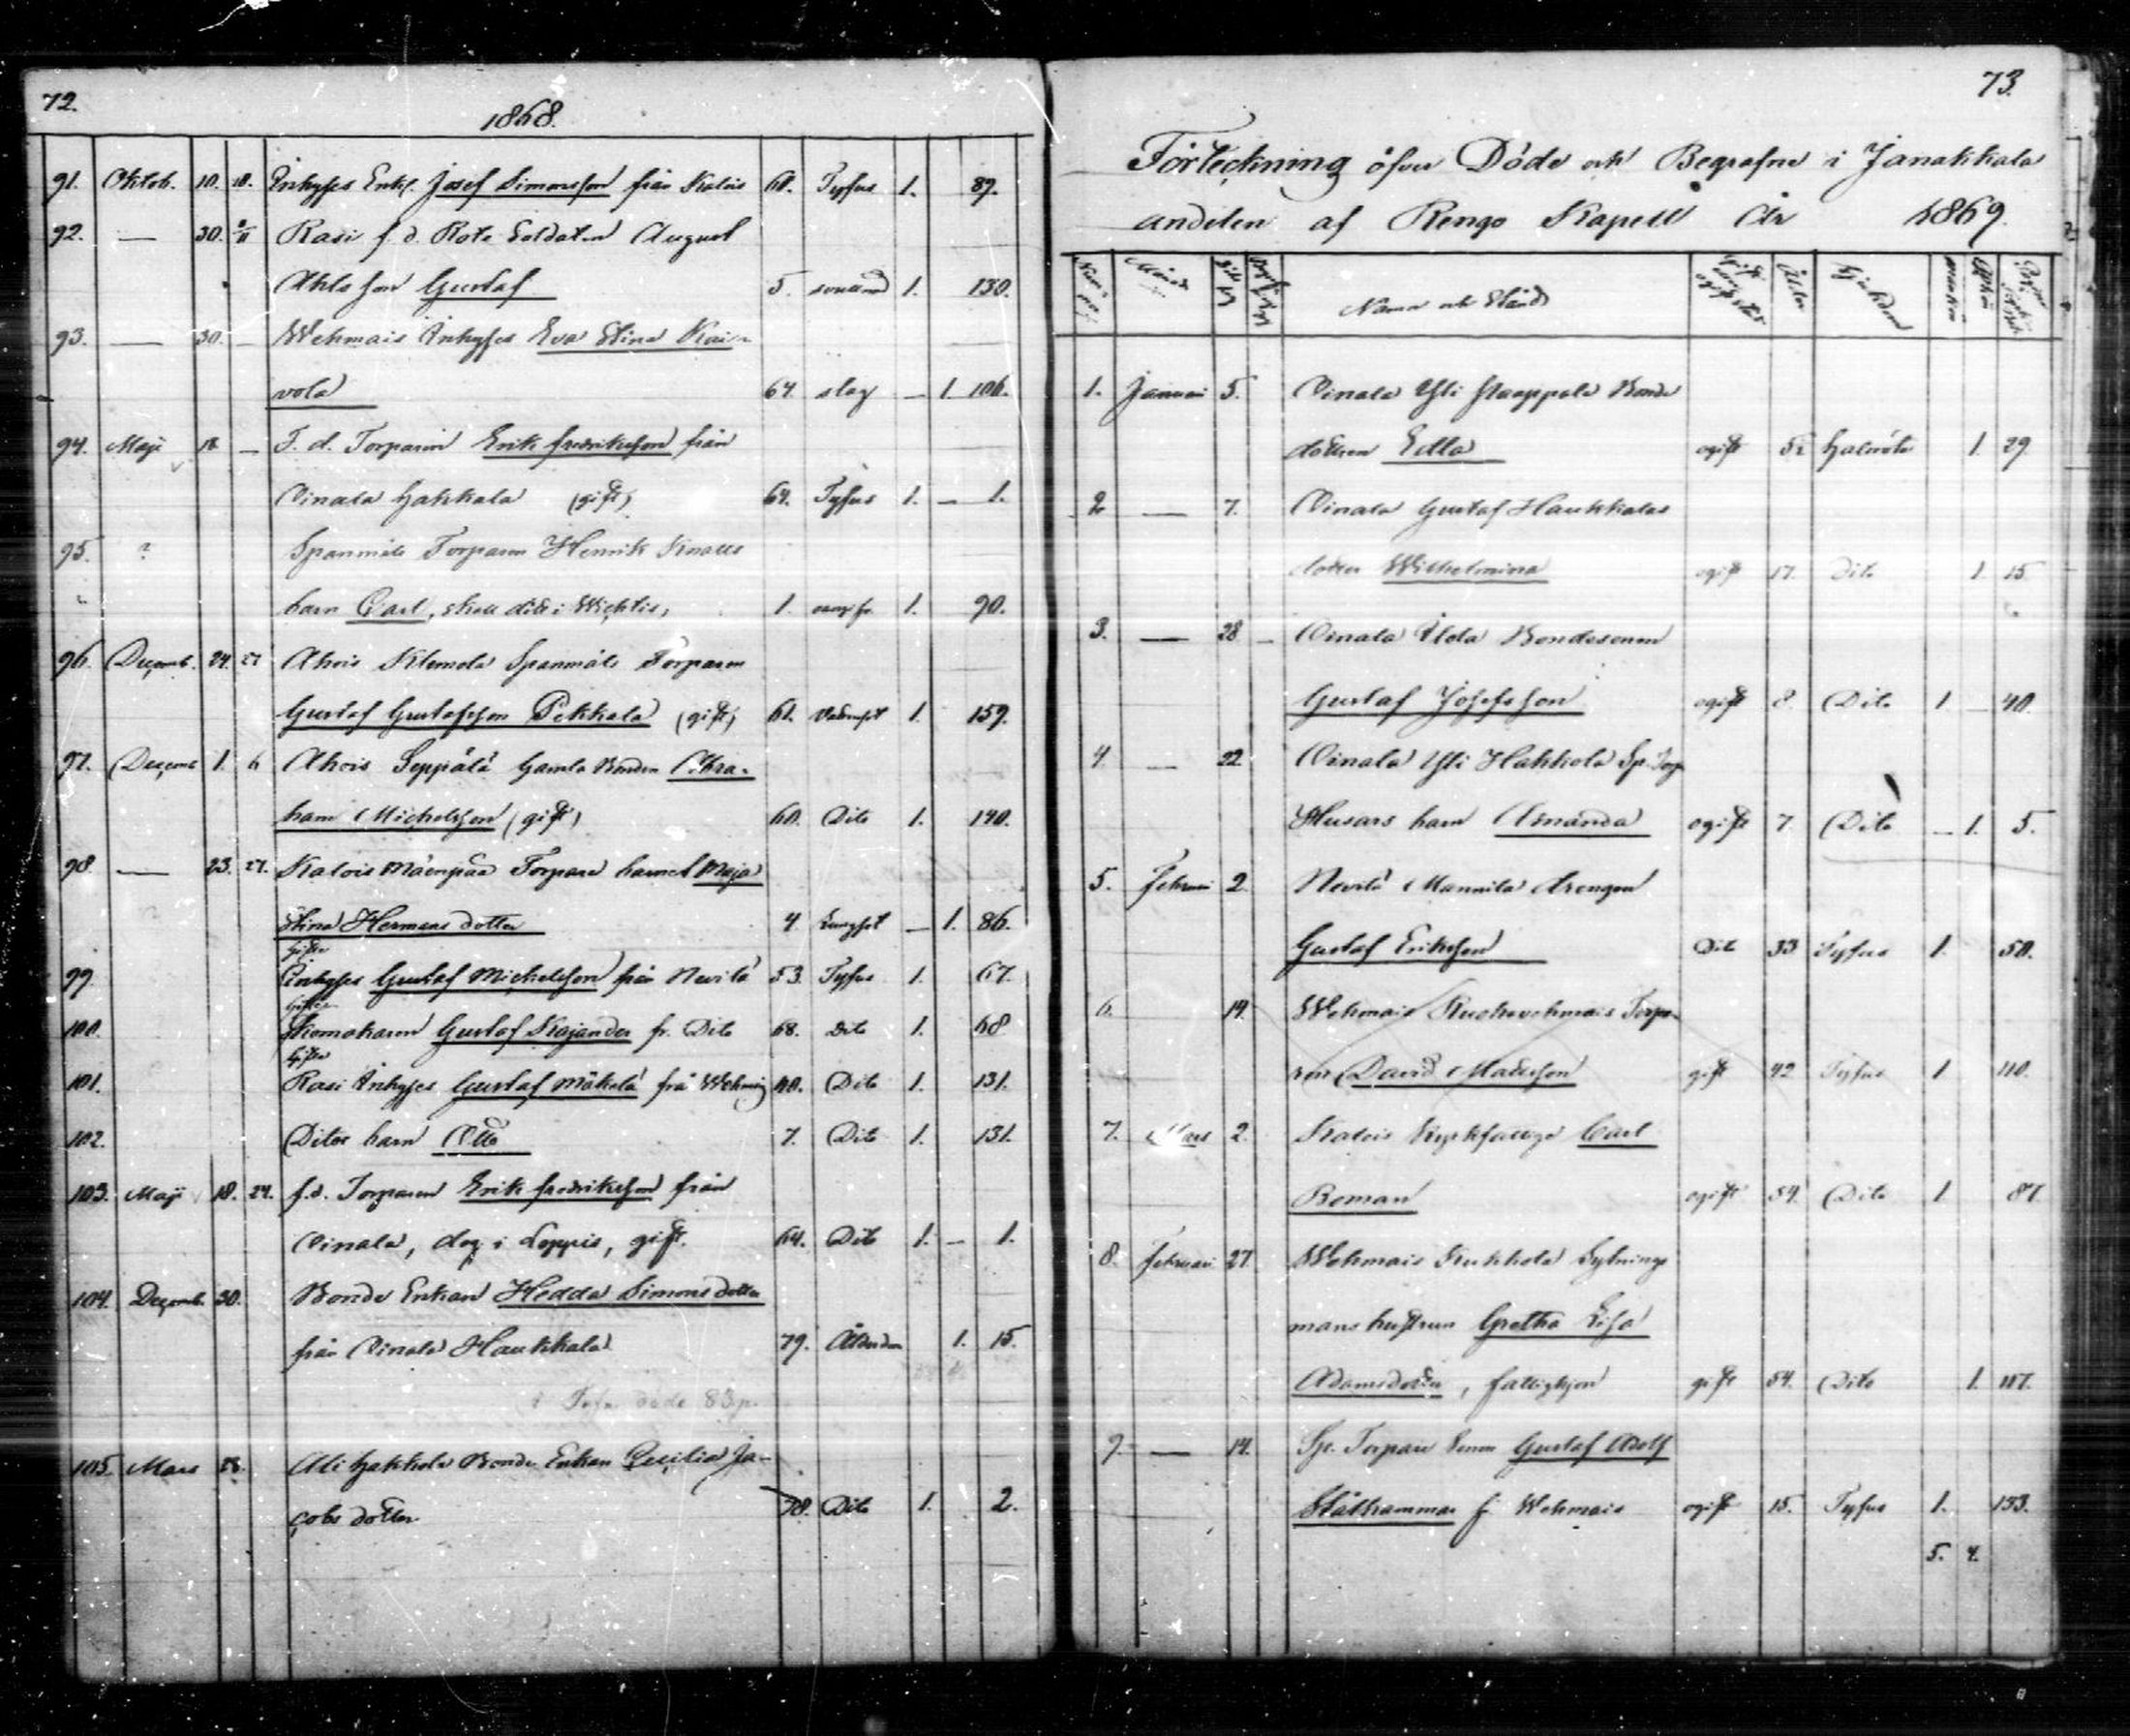 72.
1868.
91. Oktob. 10. 18. Inhyses Enkl. Josef Simonsson från Kalois 60. Tyfus 1. 89.
92. — 30. Rasi f. d. Rote Soldaten August
Ahls son Gustaf 5. 1. 130.
93. — 30. — Wehmais Inhyses Eva Stina Kai-
vola 64. slag — 1. 106.
94. Maji 18. — F. d. Torparen Erik Fredriksson från
Oinala Hakkala (gift) 64. Tyfus 1. — 1.
95. ? Spanmåls Torparen Henrik Knaces
barn Carl, skall dött i Wichtis, 1. 1. 90.
96. Decemb. 24. 27 Ahois Klemola Spanmåls Torparen
Gustaf Gustafsson Pekkala (gift) 61. 1. 159.
97. Decemb 1. 6 Ahois Seppälä Gamla Bonden Abra-
ham Michelsson (gift) 60. Dito 1. 140.
98 — 23. 27. Kalois Mäenpää Torpare barnet Maja
Stina Hermans dotter 4 Lungsot — 1. 86.
Gifte
99 Inhyses Gustaf Michelsson från Nevilä 53. Tyfus 1. 67.
Gifte
100. Skomakaren Gustaf Kajander fr. Dito 68. Dito 1. 68
Gifte
101. Rasi Inhyses Gustaf Mäkelä frå Wehmais 40. Dito 1. 131.
102. Ditos barn Otto 7. Dito 1. 131.
103. Maji 18. 24. f. d. Torparen Erik Fredriksson från
Oinala, dog i Loppis, gift. 64. Dito 1. — 1.
104. Decemb. 30. Bonde Enkan Hedda Simons dotter
från Oinala Haukkala 79. Ålderdom 1. 15.
döde 83
105. Mars 28. Ali Hakkola Bonde Enkan Cecilia Ja-
cobs dotter 78. Dito 1. 2.
73.
Förteckning öfver Döde och Begrafne i Janakkala
andelen af Rengo Kapell År 1869.
Namn och Stånd Ålder
1. Januari 5. Oinala Yli Staappala Bonde
dottren Edla ogift 5½ Halsröta 1. 29
2 — 7. Oinala Gustaf Haukkalas
dotter Wilhelmina ogift 17. Dito 1. 15
3. — 28 — Oinala Ilola Bondesonen
Gustaf Josefsson ogift 8. Dito 1 — 40.
4. — 22. Oinala Yli Hakkola Sp. Torp
Husars barn Amanda ogift 7. Dito — 1. 5.
5. Februari 2. Nevilä Mannila drengen
Gustaf Eriksson Dito 33 Tyfus 1. 50.
6. 14. Wehmais Torpa-
ren David Mattsson gift 42 Tyfus 1 110.
7. Mars 2. Kalois Kyrkfattige Carl
Boman ogift 54. Dito 1. 87.
8. Februari 27. Wehmais Kukkola Sytnings
mans hustrun Gretha Lisa
Adamsdotter, fattighjon gift 54. Dito 1. 117.
9. — 14. Sp. Torpare sonen Gustaf Adolf
Stålhammar f. Wehmais ogift 15. Tyfus 1. 133.
5. 4.